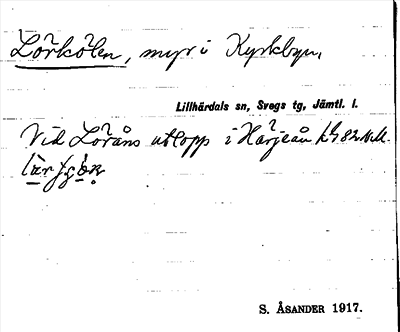 Lörkölen, myr i Kyrkbyn,
Lillhärdals sn, Svegs tg, Jämtl. l.
Vid Löråns utlopp i Härjeån
S. ÅSANDER 1917.